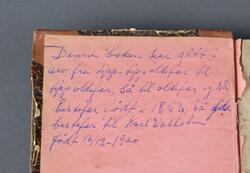 Denne boken har gått i
arv fra tipp-tip, oldefar til
tipoldefar, så til oldefar og så
bestefar født i 1853, så
bestefar til Karl Walholm
født 16/12-1900